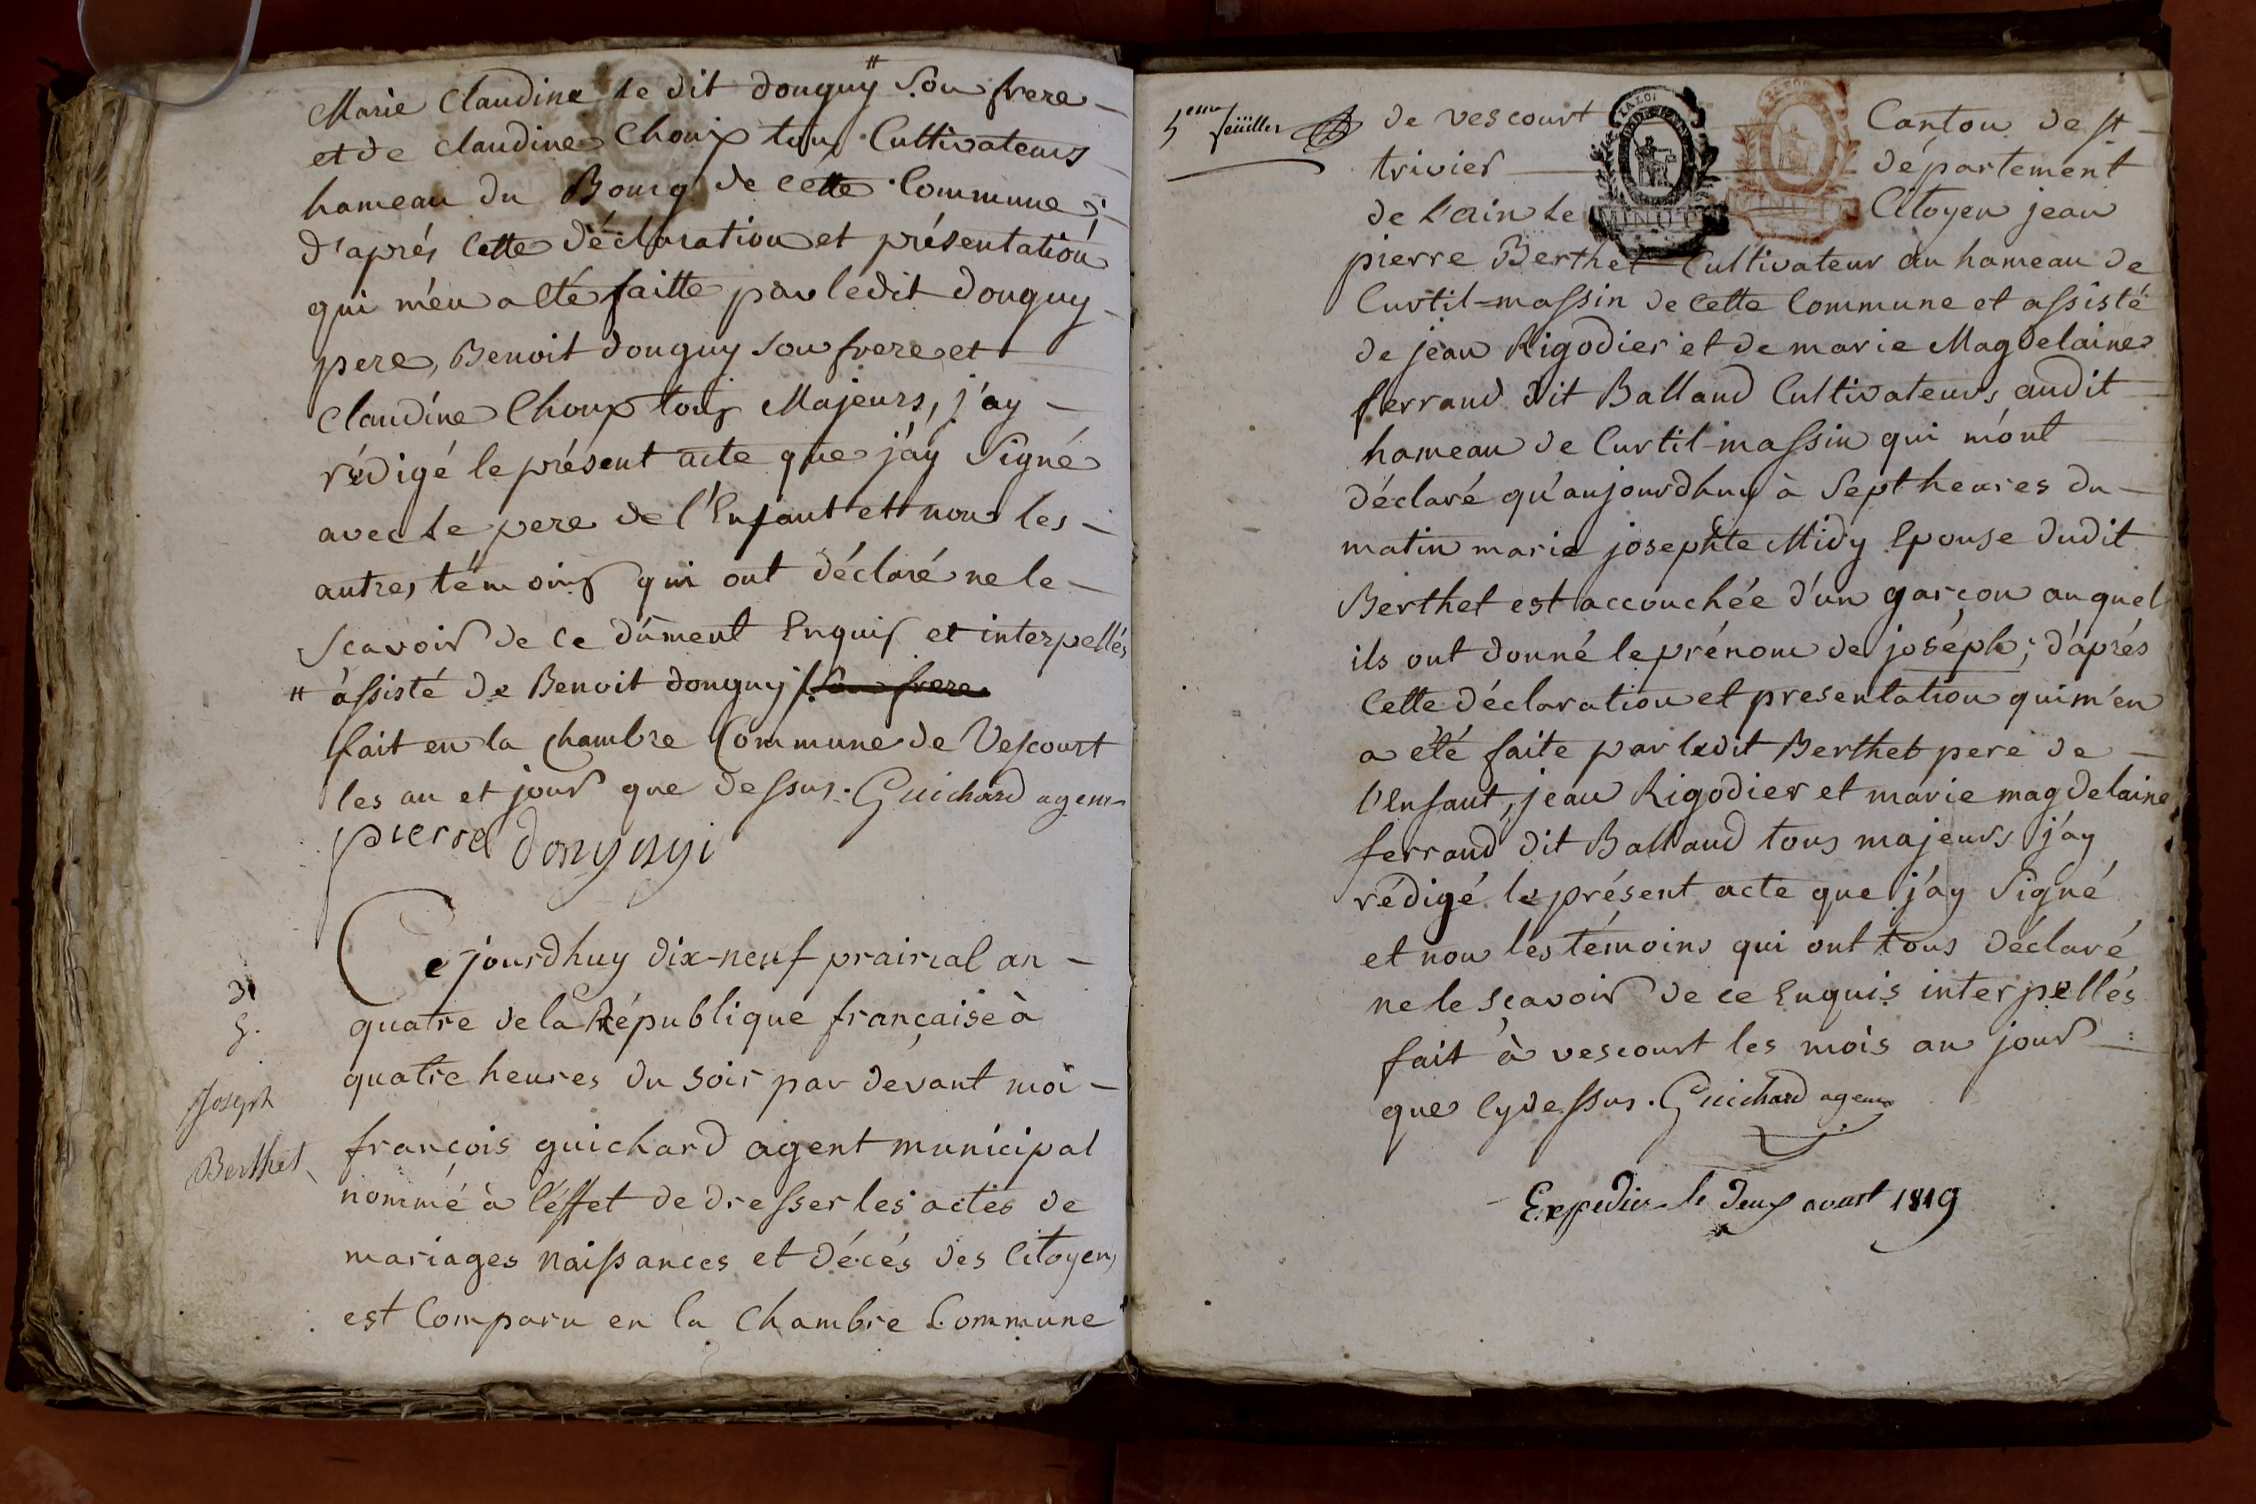 Marie Claudine le dit donguy # Son frere
et de claudine Choux tous Cultivateurs
hameau du Bourg de Cette Commune;
d'aprés Cette déclaration et présentation
qui m'en a été faitte par ledit donguy
pere, Benoit donguy son frere et
Claudine Choux tous Majeurs, j'ay
rédigé le présent acte que j'ay Signé
avec le pere de l'Enfant et non les
autres témoins qui ont déclaré ne le
Scavoir de Ce dûment Enquis et interpellés
# assisté de Benoit donguy son frere
fait en la Chambre Commune de Vescourt
les an et jour que dessus. Guichard agent
pierre donguyi
Ce jourdhuy dix-neuf prairial an
quatre de la République française à
quatre heures du Soir par devant moi
françois guichard agent municipal
nommé à l'éffet de dresser les actes de
mariages naissances et décés des Citoyens
est Comparu en la Chambre Commune
Joseph
Berthet
5eme feüillet
de vescourt Canton de st
trivier département
de l'ain le Citoyen jean
LA LOI
MINUTE
pierre Berthet Cultivateur au hameau de
Curtil-massin de Cette Commune et assisté
de jean Rigodier et de marie Magdelaine
ferrand dit Balland Cultivateurs audit
hameau de Curtil-massin qui m'ont
déclaré qu'aujourdhuy à Sept heures du
matin marie josephte Midy Epouse dudit
Berthet est accouchée d'un garçon auquel
ils ont donné le prénom de joséph; d'aprés
Cette déclaration et presentation qui m'en
a été faite par ledit Berthet pere de
l'Enfant, jean Rigodier et marie magdelaine
ferrand dit Balland tous majeurs j'ay
rédigé le présent acte que j'ay Signé
et non les témoins qui ont tous déclaré
ne le sçavoir de ce Enquis interpellés
fait à vescourt les mois an jour
que Cydessus. Guichard agent
Expedier le Deux avart 1819